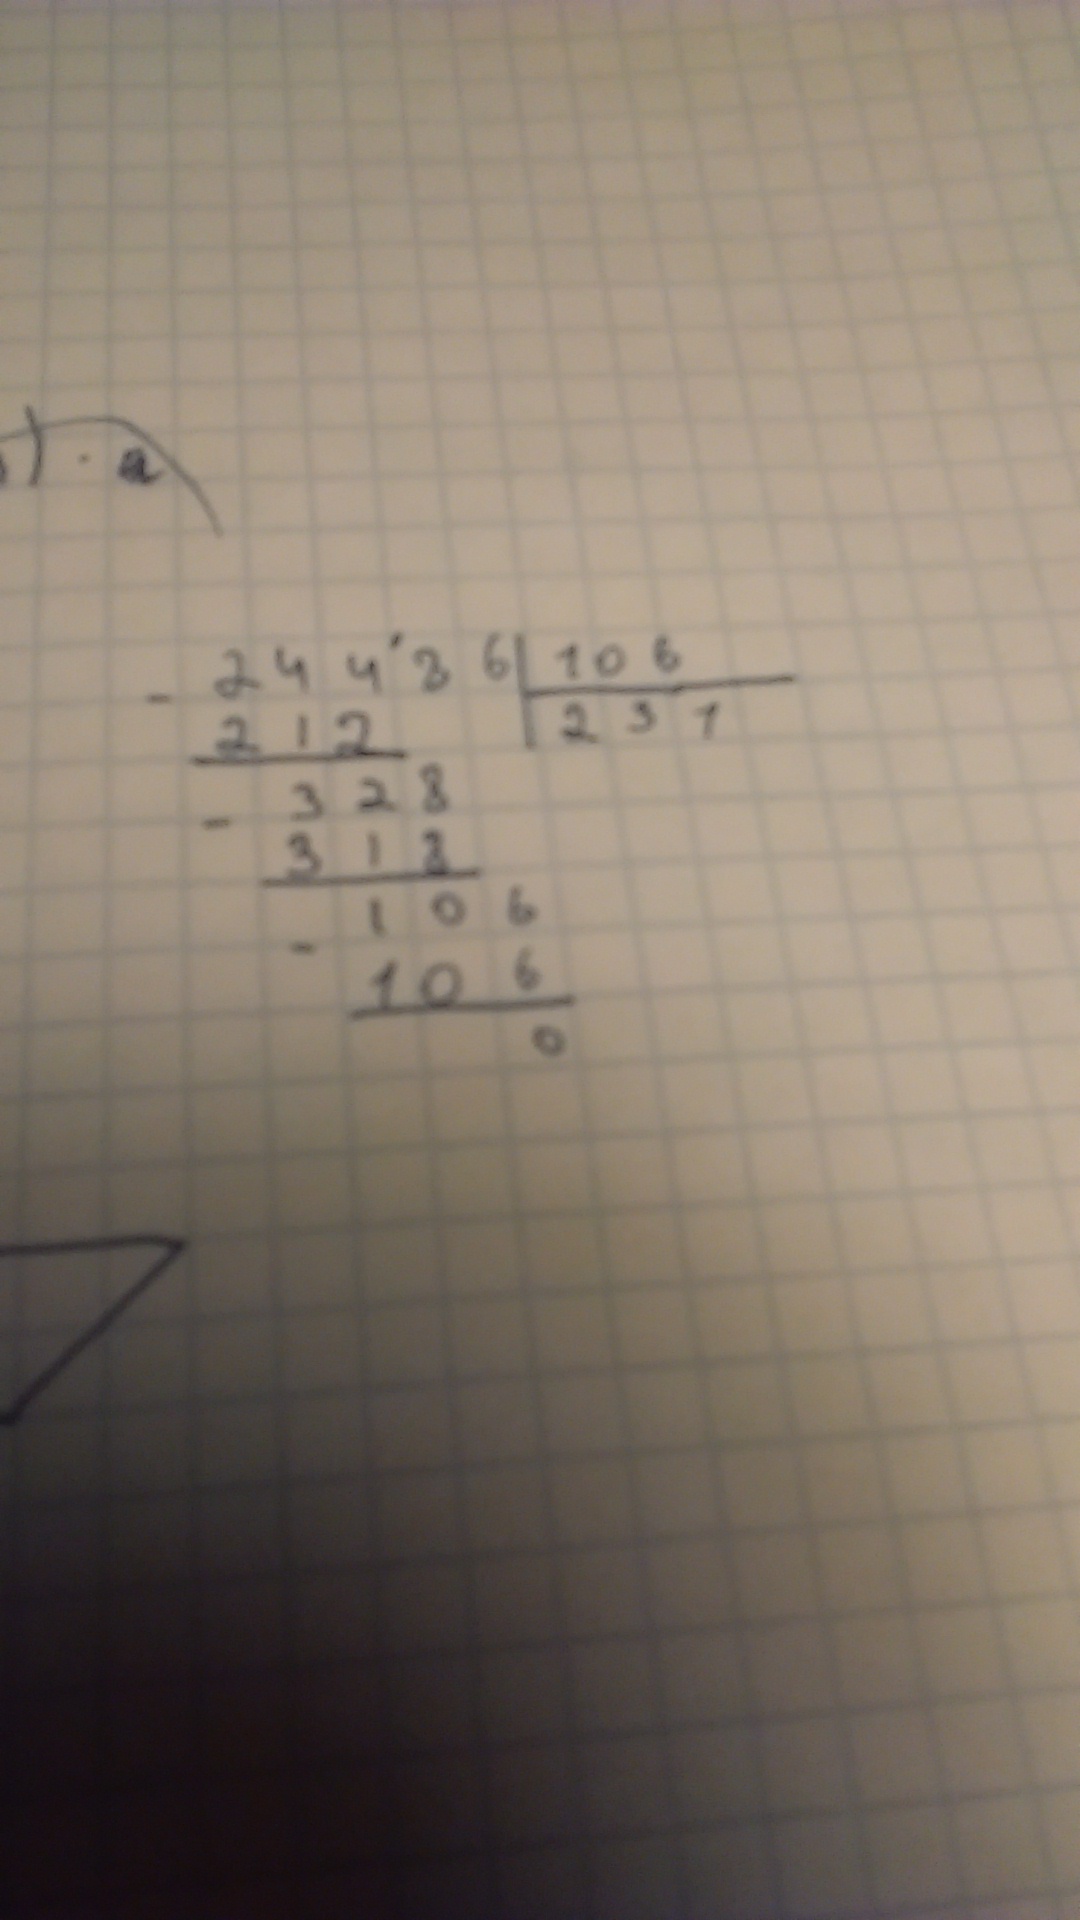 ) · a
- 24486 | 106
212 | 231
- 328
318
- 106
106
0